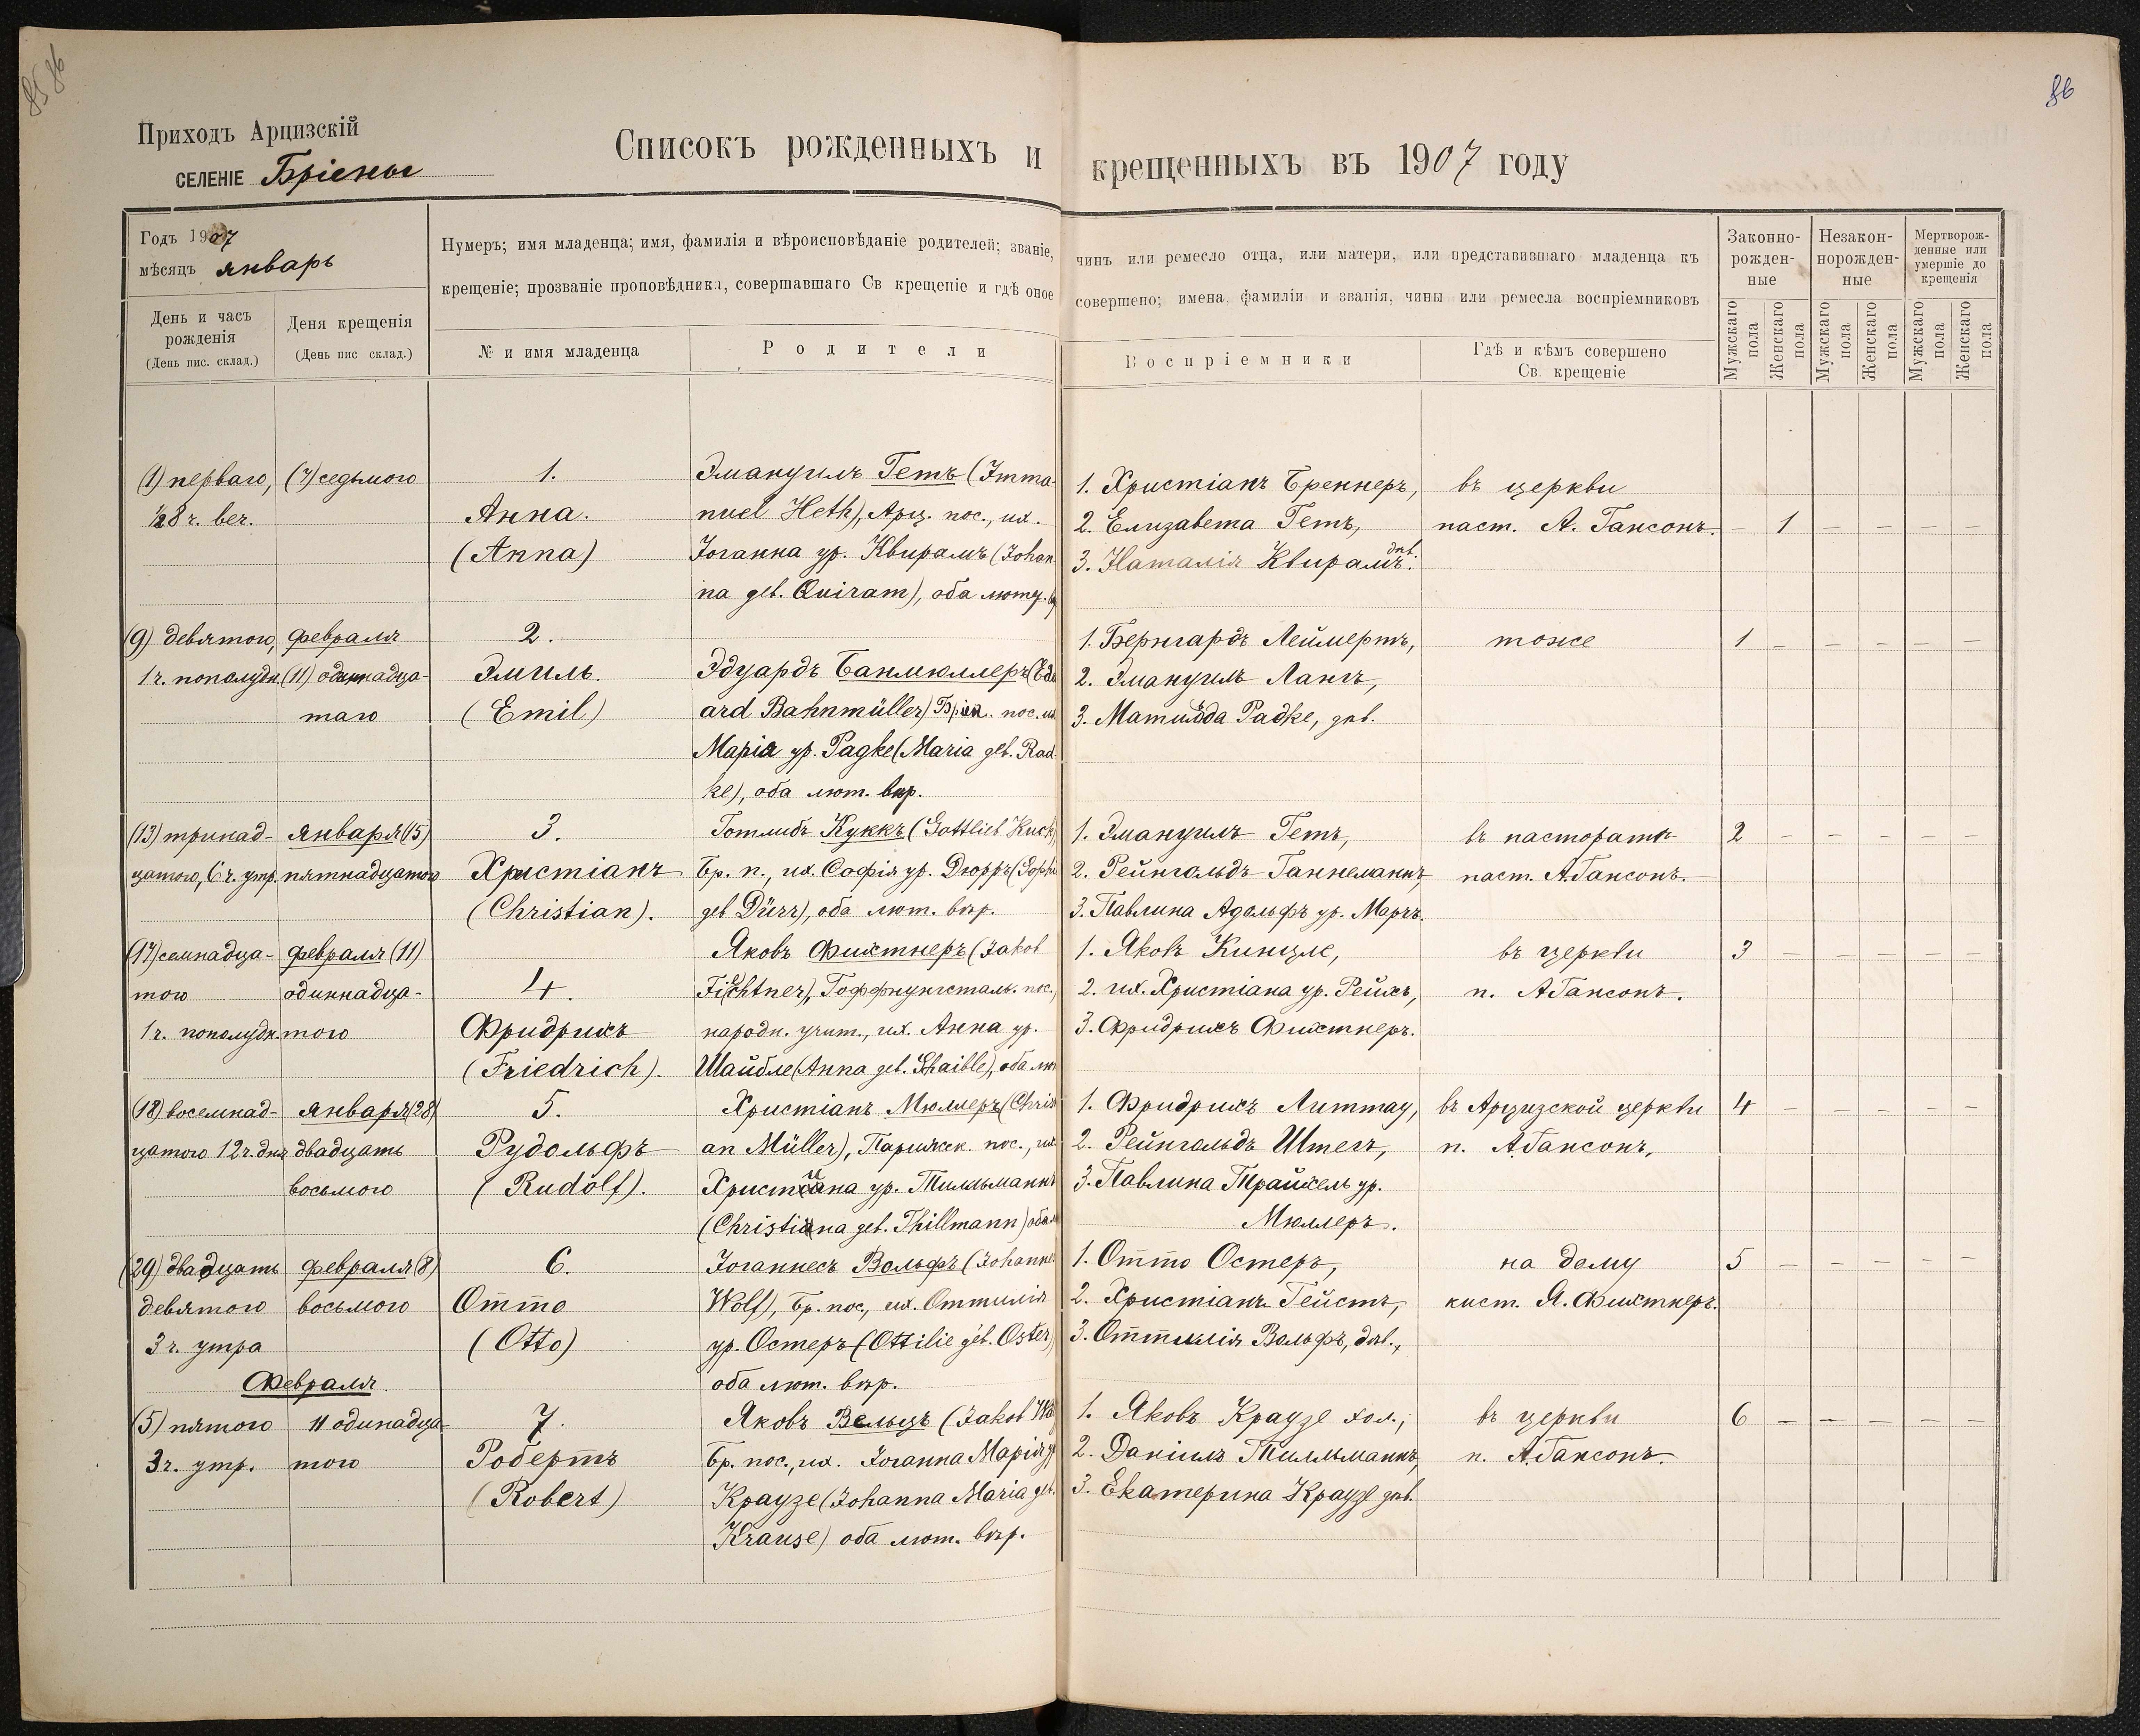 85 86
86
Приходъ Арцизскій
СЕЛЕНІЕ Бріены
Списокъ рожденныхъ и крещенныхъ въ 1907 году
Годъ 1907
мѣсяцъ январь
Нумеръ; имя младенца; имя, фамилія и вѣроисповѣданіе родителей; званіе, чинъ или ремесло отца, или матери, или представившаго младенца къ
крещеніе; прозваніе проповѣдника, совершавшаго Св крещеніе и гдѣ оное совершено; имена, фамиліи и званія, чины или ремесла воспріемниковъ
День и часъ рожденія
(День пис. склад.)
Деня крещенія
(День пис склад.)
№ и имя младенца
Родители
Воспріемники
Гдѣ и кѣмъ совершено
Св. крещеніе
Законно-
рожден-
ные
Незакон-
норожден-
ные
Мертворож-
денные или
умершіе до
крещенія
Мужскаго пола
Женскаго пола
Мужскаго пола
Женскаго пола
Мужскаго пола
Женскаго пола
(1) перваго,
½8 ч. веч.
(7) седьмого
1.
Анна.
(Anna)
Эмануилъ Гетъ (Imma-
nuel Heth), Арц. пос., иж.
Іоганна ур. Квирамъ (Johan-
na geb. Quiram), оба лютер.
1. Христіанъ Бреннеръ,
2. Елизавета Гетъ,
3. Наталія Квирамъ. двѣ.
въ церкви
паст. А. Гансонъ.
– 1 – – – –
(9) девятого,
1 ч. пополудн
февраля
(11) одиннадца-
таго
2.
Эмиль.
(Emil)
Эдуардъ Банмюллеръ (Edu
ard Bahnmüller) Бріен. пос. иж
Марія ур. Радке (Maria geb. Rad-
ke), оба лют. вѣр.
1. Бернгардъ Леймертъ,
2. Эмануилъ Лангъ,
3. Матильда Радке, двѣ.
тоже
1 – – – – –
(13) тринад-
цатого, 6 ч. утр.
января (15)
пятнадцатого
3.
Христіанъ
(Christian).
Готлибъ Куккъ (Gottlieb Kuck),
Бр. п., иж. Софія ур. Дюрръ (Sophi
geb Dürr), оба лют. вѣр.
1. Эмануилъ Гетъ,
2. Рейнгольдъ Ганнеманнъ,
3. Павлина Адольфъ ур. Марчъ.
въ пасторатѣ
паст. А. Гансонъ.
2 – – – – –
(17) семнадца-
того
1 ч. пополудн.
февраля (11)
одиннадца-
того
4.
Фридрихъ
(Friedrich).
Яковъ Фихтнеръ (Jakob
Fichtner), Гоффнунгсталь. пос.,
народн. учит., иж. Анна ур.
Шайбле (Anna geb. Schaible), оба лют
1. Яковъ Кинцле,
2. иж. Христіана ур. Рейхъ,
3. Фридрихъ Фихтнеръ.
въ церкви
п. А Гансонъ.
3 – – – – –
(18) восемнад-
цатого 12 ч. дня
января (28)
двадцать
восьмого
5.
Рудольфъ
(Rudolf).
Христіанъ Мюллеръ (Christi
an Müller), Парижск. пос., иж
Христіана ур. Тилльманнъ
(Christiana geb. Thillmann) оба л
1. Фридрихъ Литтау,
2. Рейнгольдъ Штегъ,
3. Павлина Трайхель ур.
Мюллеръ.
въ Арцизской церкви
п. А. Гансонъ,
4 – – – – –
(29) двадцать
девятого
3 ч. утра
февраля (8)
восьмого
6.
Отто
(Otto)
Іоганнесъ Вольфъ (Johanne
Wolf), Бр. пос., иж. Оттилія
ур. Остеръ (Ottilie geb. Oster)
оба лют. вѣр.
1. Отто Остеръ,
2. Христіанъ Гейстъ,
3. Оттилія Вольфъ, двѣ.,
на дому
кист. Я. Фихтнеръ.
5 – – – – –
Февраля
(5) пятого
3 ч. утр.
11 одинадца-
того
7.
Робертъ
(Robert)
Яковъ Вельцъ (Jakob
Бр. пос., иж. Іоганна Марія ур
Краузе (Johanna Maria geb.
Krause) оба лют. вѣр.
1. Яковъ Краузе хол.,
2. Даніилъ Тилльманнъ,
3. Екатерина Краузе двѣ.
въ церкви
п. А. Гансонъ.
6 – – – – –